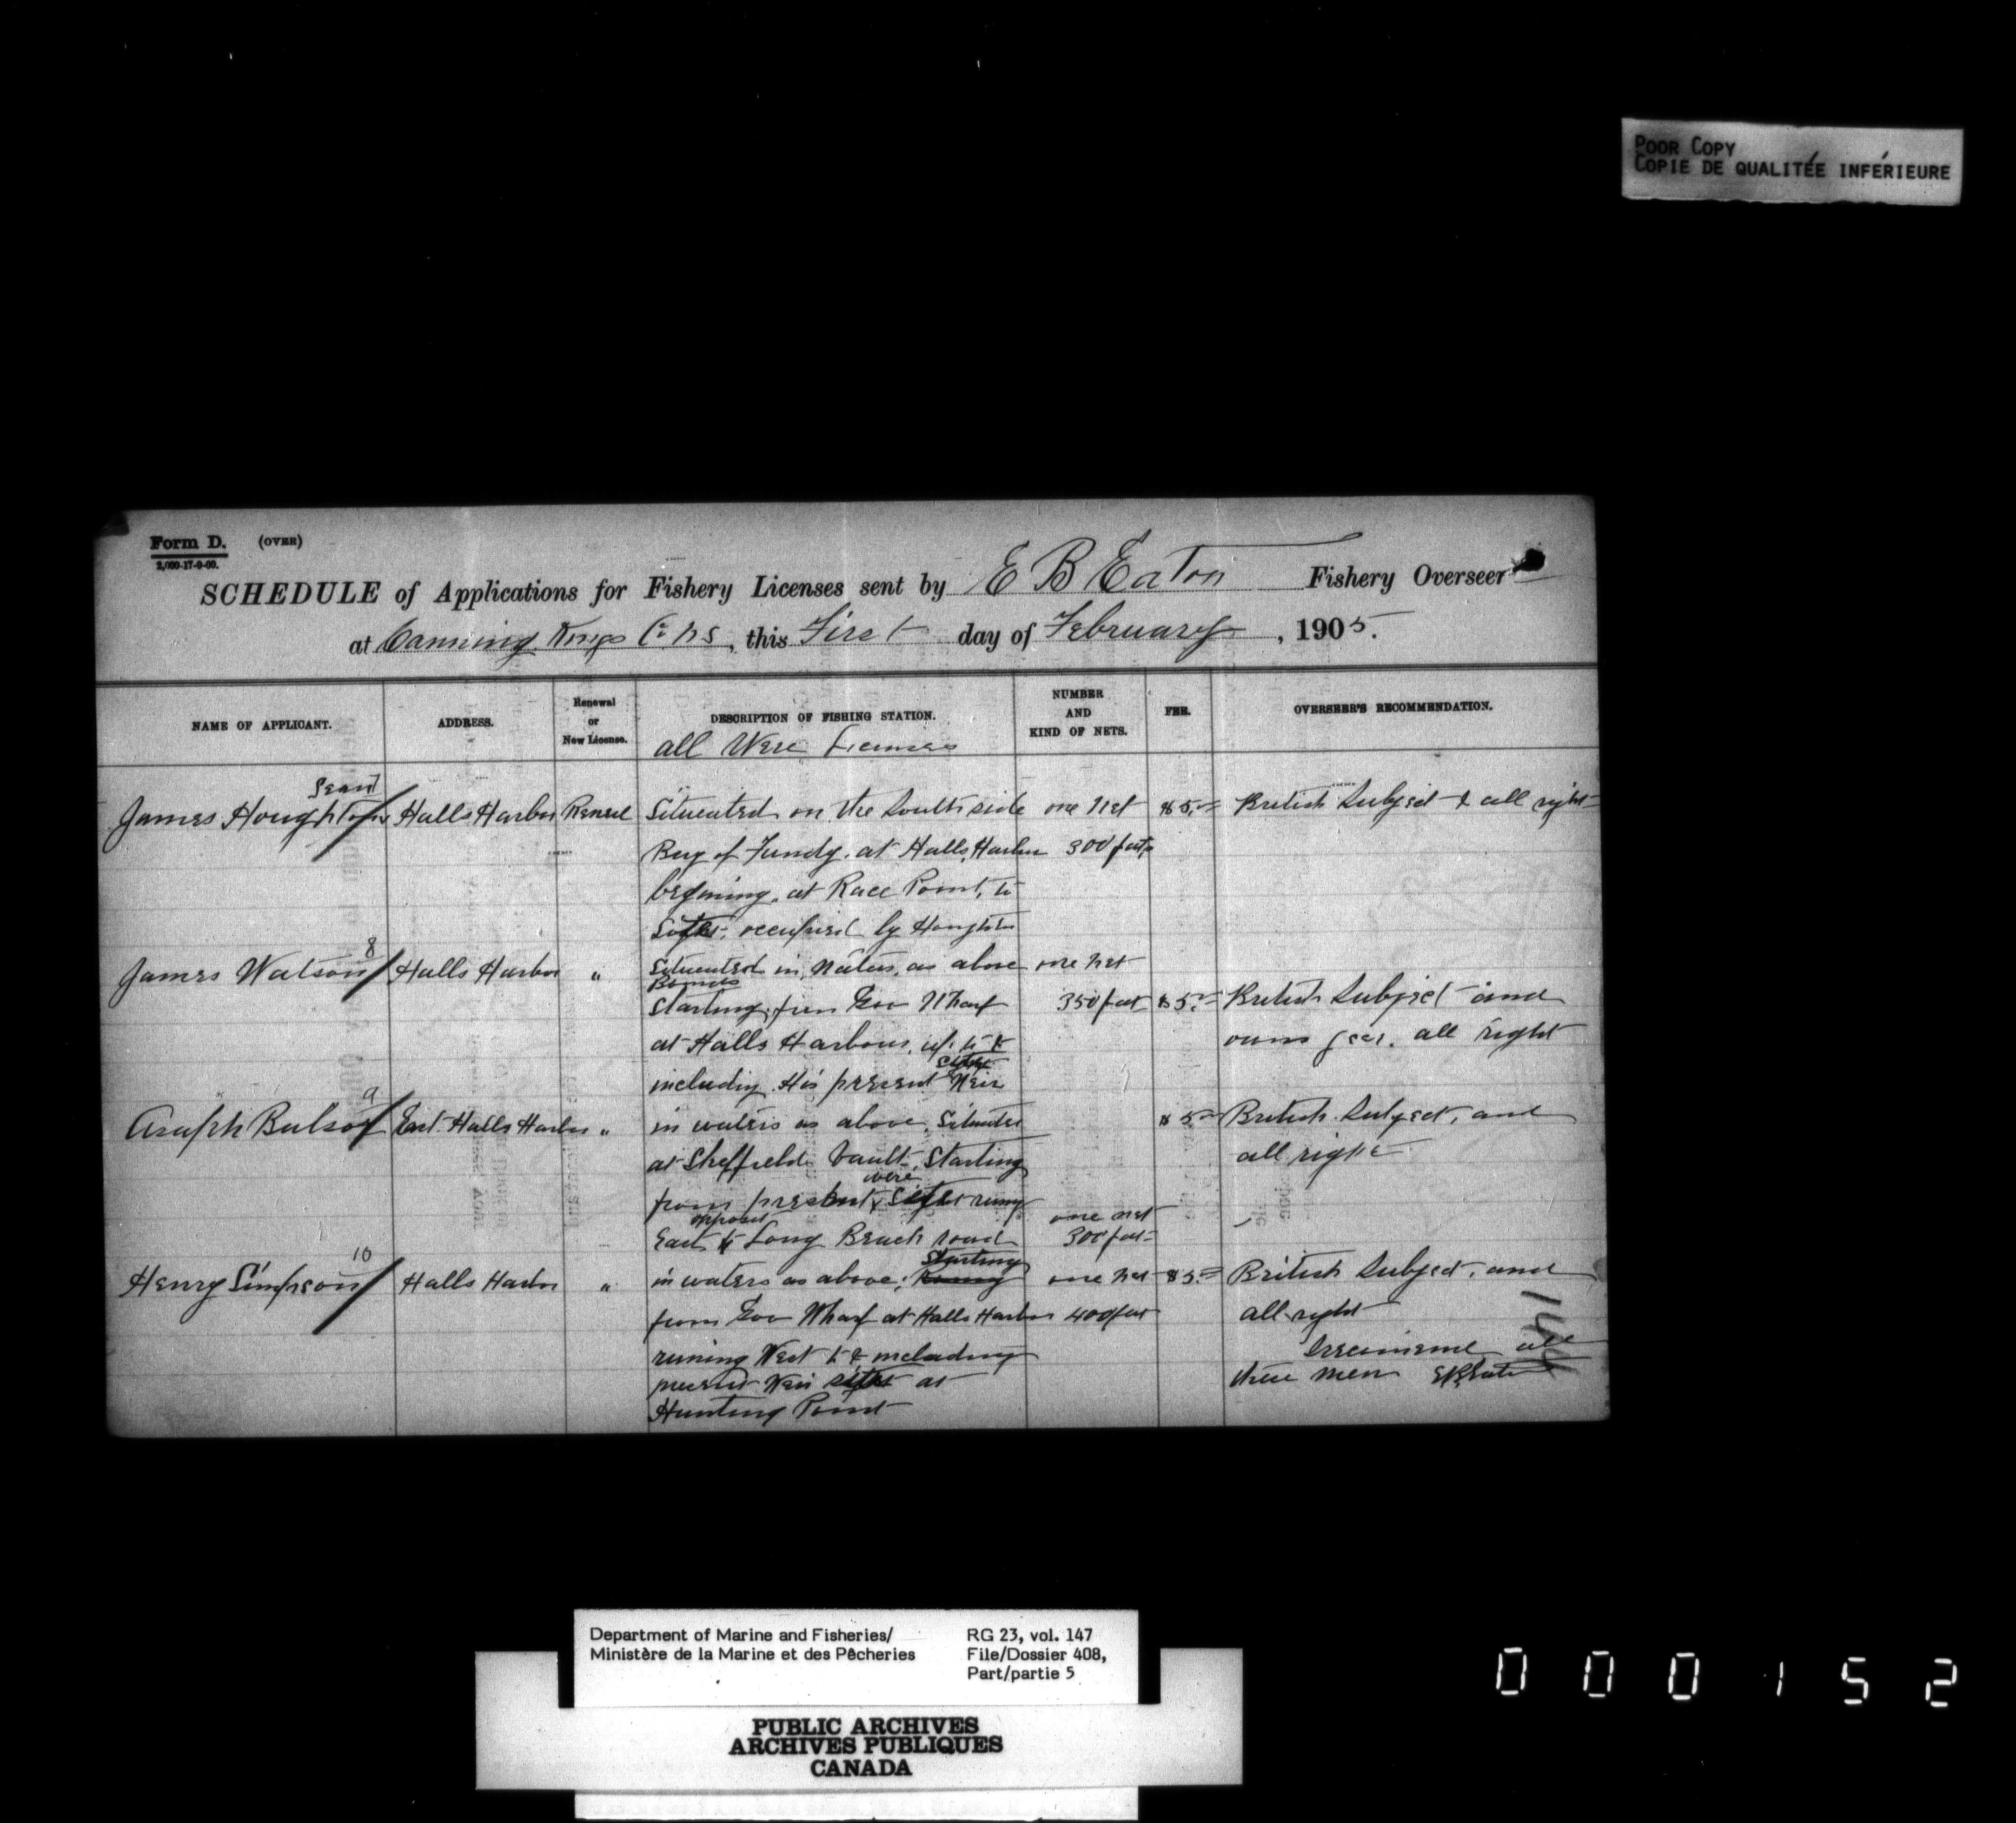 POOR COPY
COPIE DE QUALITÉE INFÉRIEURE
Form D. (OVER)
2,000-17-9-00.
SCHEDULE of Applications for Fishery Licenses sent by E B Eaton Fishery Overseer
at Canning Kings Co NS, this First day of February, 1905.
NAME OF APPLICANT.
ADDRESS.
Renewal
or
New License.
DESCRIPTION OF FISHING STATION.
all Were Licenses
NUMBER
AND
KIND OF NETS.
FEE.
OVERSEER'S RECOMMENDATION.
James Houghton Halls Harbor Renewl Situented on the South side one net $5.00 British Subject & all right
Bay of Fundy. at Halls Harbor 300 feet
begining. at Race Point, to
occupied by Houghton
8
James Watson Halls Harbor " Situented in Waters, as above one net
Bounds
Starting from Gov Wharf 350 feet $5.00 British Subject and
at Halls Harbour, up to & owns gear. all right
including His present Weir
9
Asaph Bulsor East Halls Harbor " in waters as above, Situated $5.00 British Subject, and
at Sheffield Vault, Starting all right
were
from present runing
opposit one net
East to Long Beach road 300 feet
10
Starting
Henry Simpson Halls Harbor " in waters as above; Runing one net $5.00 British Subject, and
from Gov Wharf at Halls Harbor 400 feet all right
runing West to & including
present Weir at these men EBEaton
Hunting Point
Department of Marine and Fisheries/
Ministère de la Marine et des Pêcheries
RG 23, vol. 147
File/Dossier 408,
Part/partie 5
PUBLIC ARCHIVES
ARCHIVES PUBLIQUES
CANADA
000152